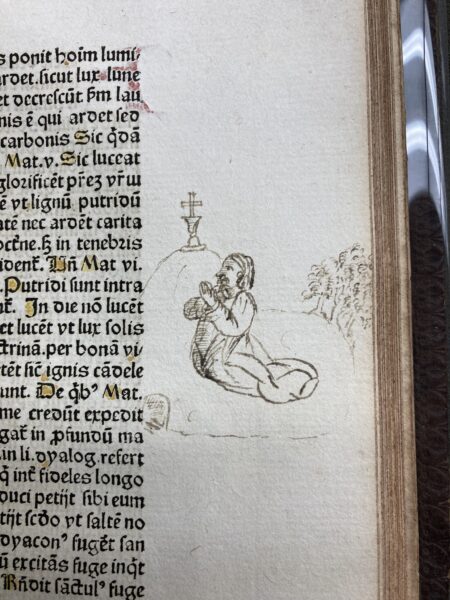 s ponit hoīm lumi⸗
ardet. ſicut lux lune
et decreſcūt ẜm lau
nis ē qui ardet ſed
carbonis Sic q̄dā
Mat. v. Sic luceat
glorificēt pr̄eꝫ vr̄ꝫ
ē vt lignū putridū
atē nec ardēt carita
octrīne. ſꝫ in tenebris
ident̄. Un̄ Mat vi.
Putridi ſunt intra
nt̄. In die nō lucēt
et lucēt vt lux ſolis
trinā. per bonā vi⸗
tēt ſic̄ ignis cādele
unt. De q̄bꝰ Mat.
me credūt expedit
gat̄ in ꝓfundū ma
in li. dyalog. refert
q̄ int̄ fideles longo
duci petijt ſibi eum
tijt ſcd̄o vt ſaltē no
dyaconꝰ fuget ſan
ū excitās fuge inq̄t
Rn̄dit ſāctulꝰ fuge